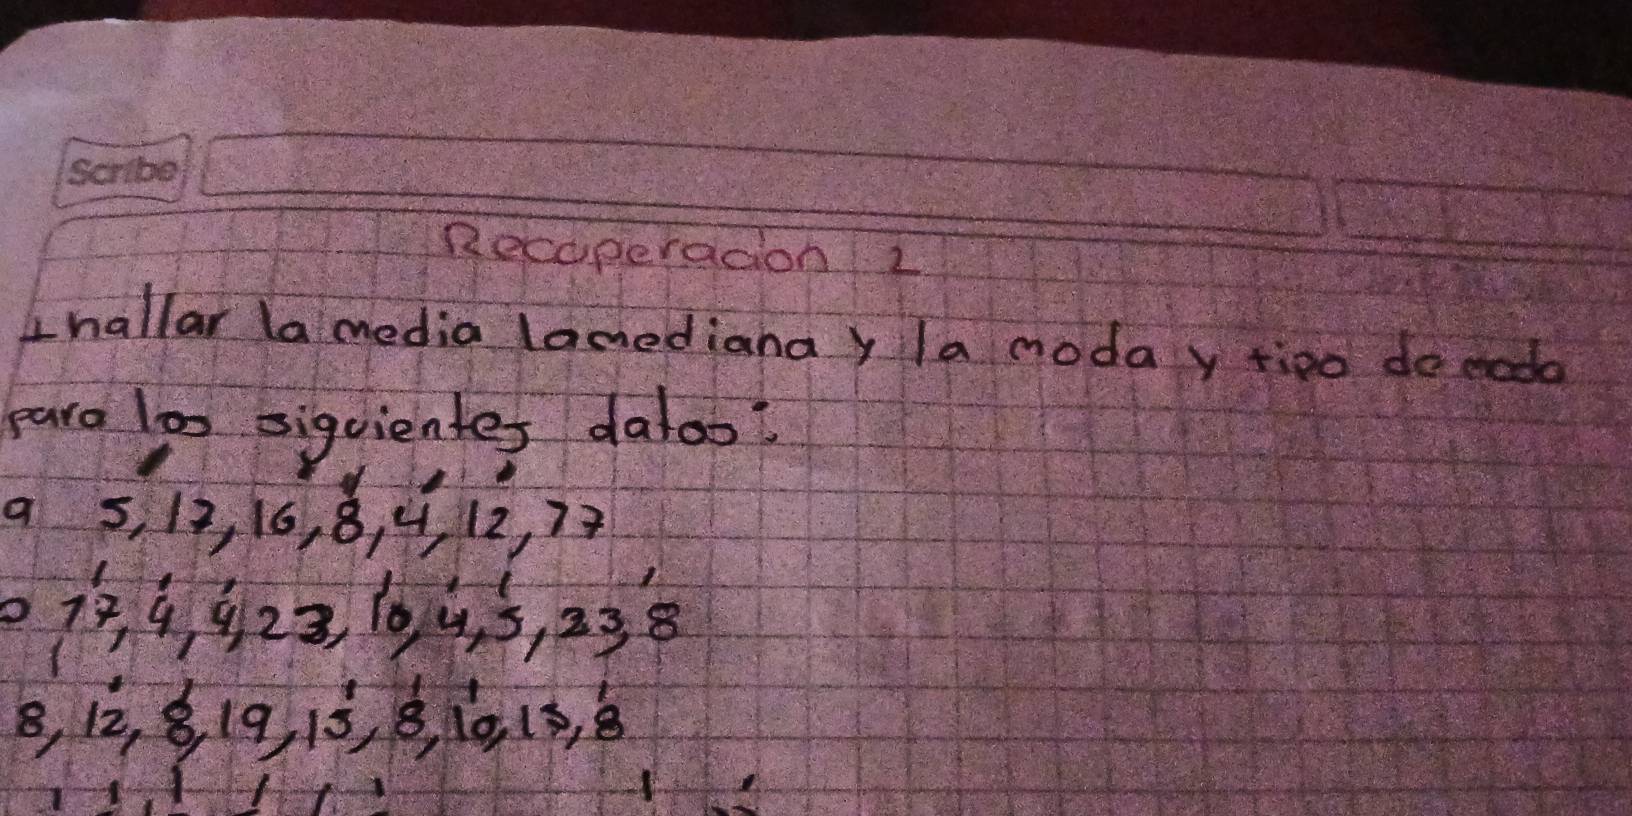 Scribe
Recuperacion 2
1 hallar la media la mediana y la moda y tipo de moda
para los siguientes datos:
a 5, 17, 16, 8, 4, 12, 77
17, 4, 4, 23, 10, 4, 5, 23, 8
8, 12, 8, 19, 15, 8, 10, 15, 8